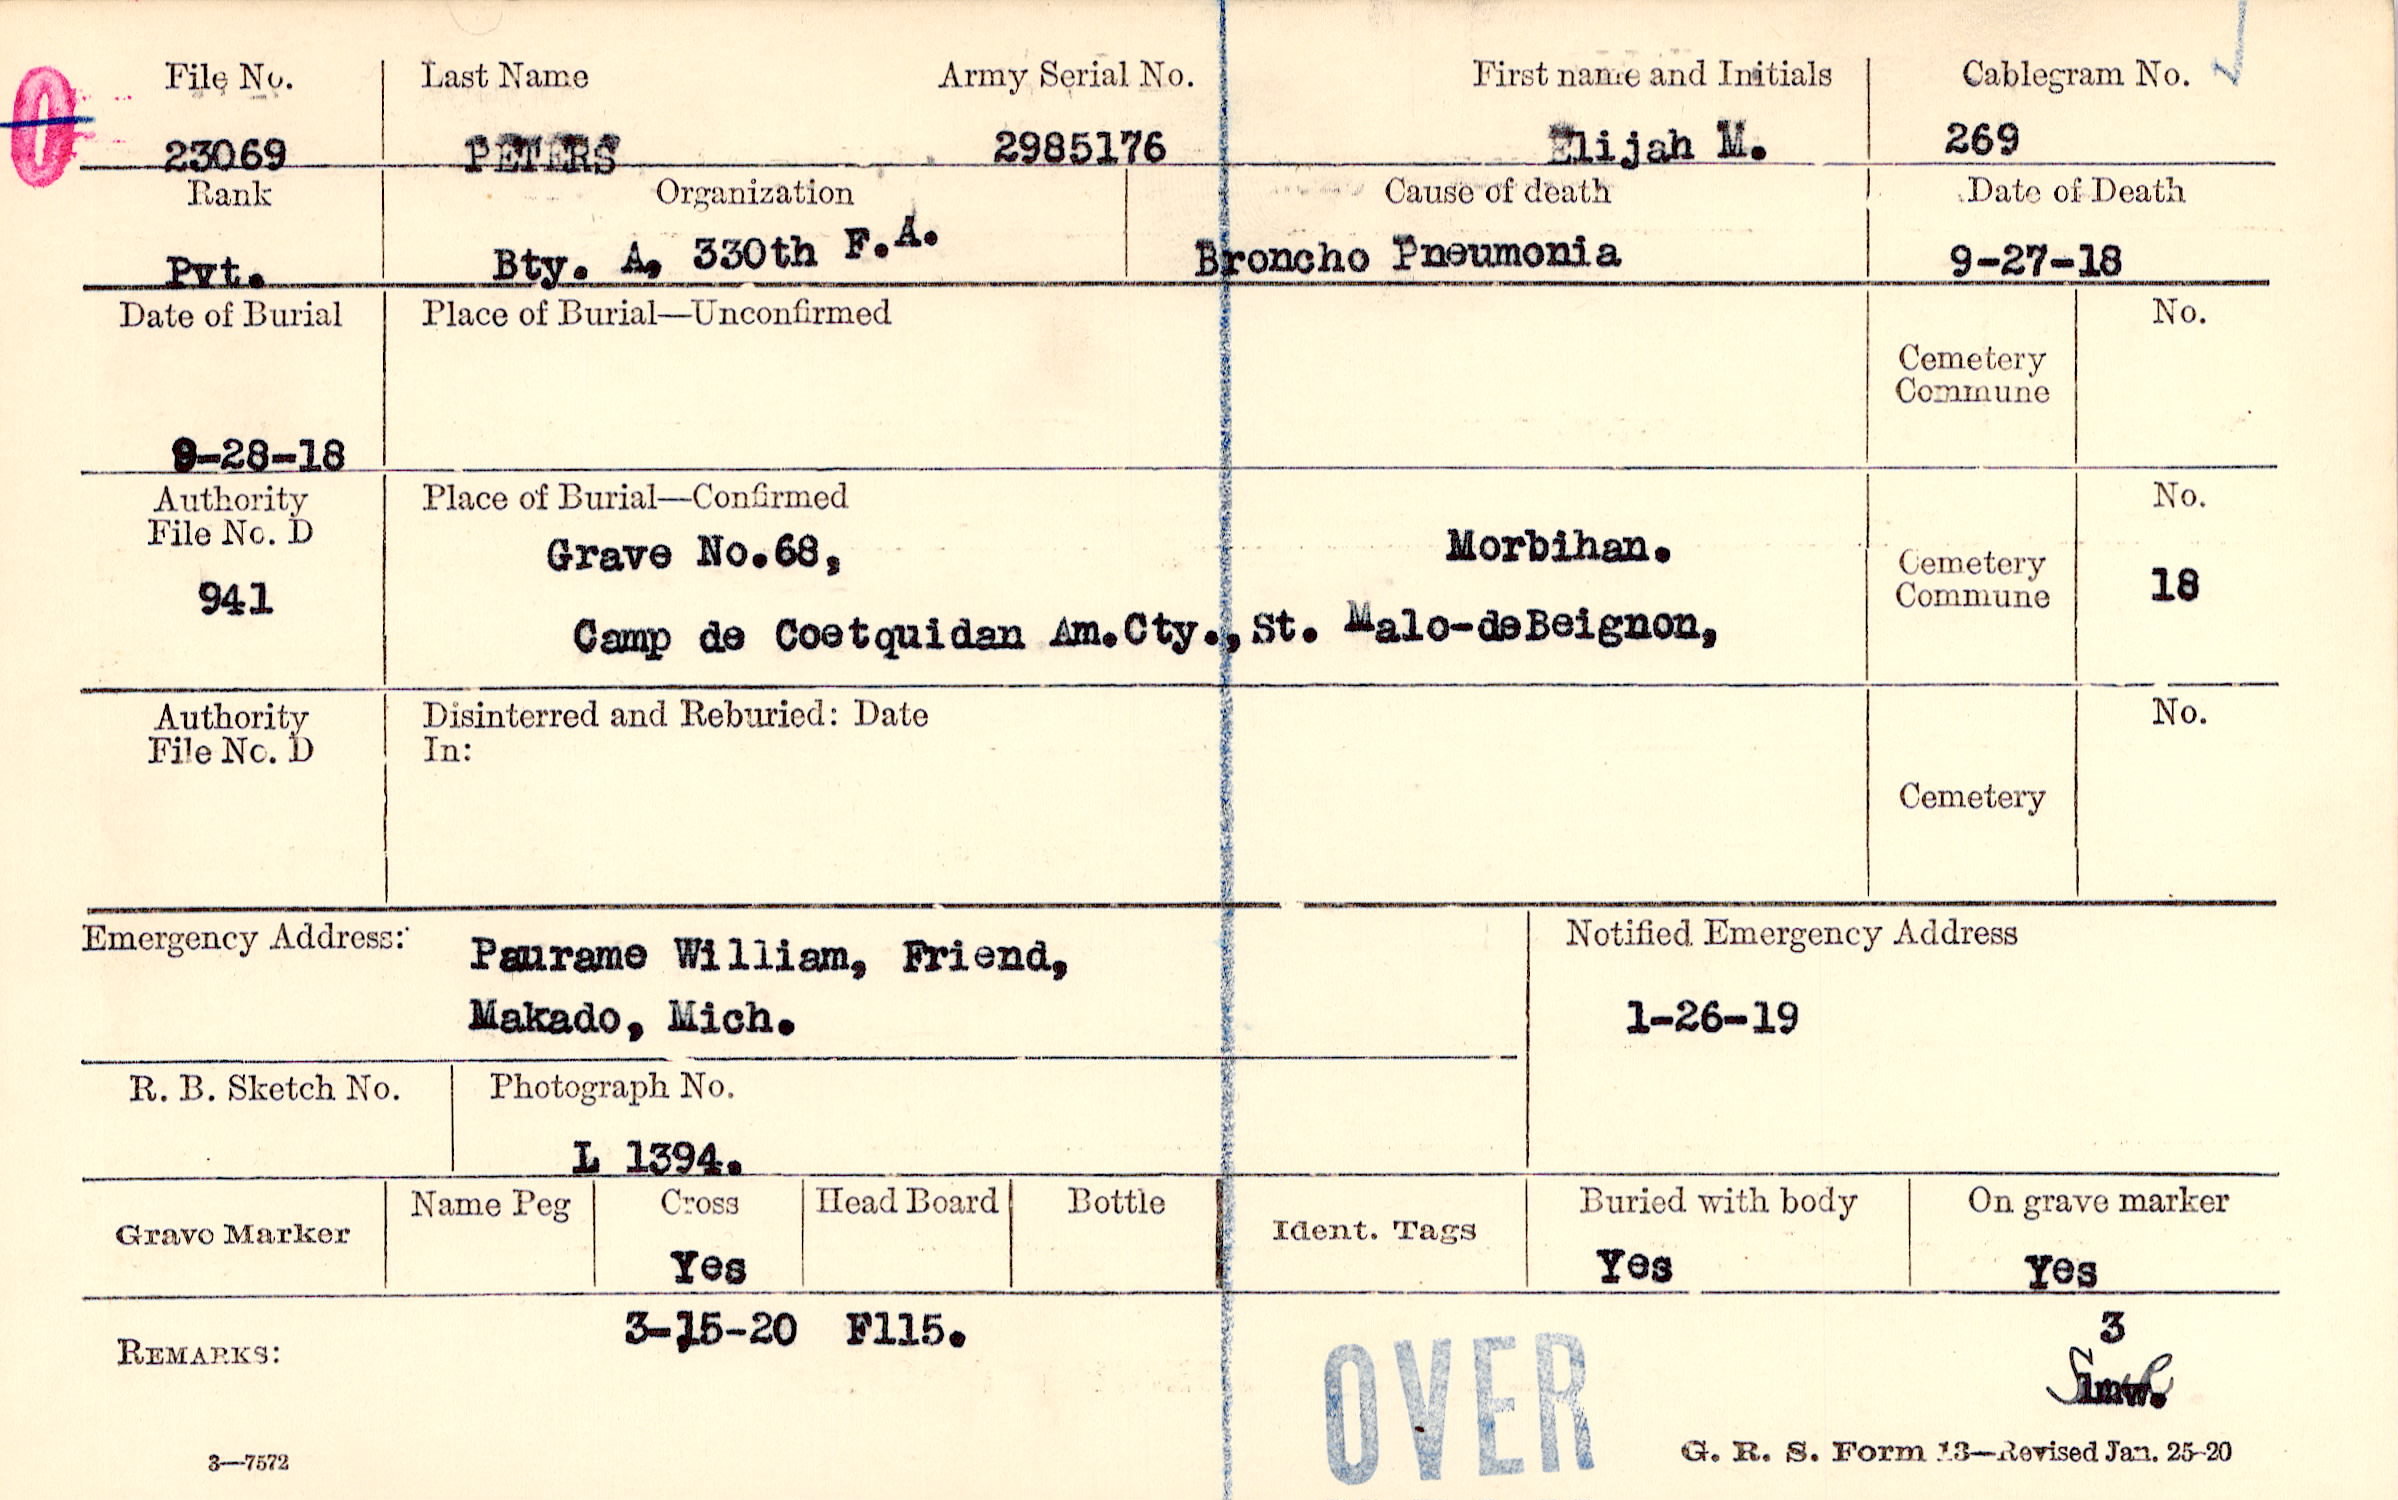 File No. Last Name Army Serial No. First name and Initials Cablegram No.
0 23069 PETERS 2985176 Elijah M. 269
Rank Organization Cause of death Date of Death
Pvt. Bty. A, 330th F.A. Broncho Pneumonia 9-27-18
Date of Burial Place of Burial—Unconfirmed No.
Cemetery
Commune
9-28-18
Authority Place of Burial—Confirmed No.
File No. D
Grave No.68, Morbihan.
Cemetery
941 Commune 18
Camp de Coetquidan Am.Cty.,St. Malo-deBeignon,
Authority Disinterred and Reburied: Date No.
File No. D In:
Cemetery
Emergency Address: Paurame William, Friend, Notified Emergency Address
Makado, Mich. 1-26-19
R. B. Sketch No. Photograph No.
L 1394.
Grave Marker Name Peg Cross Head Board Bottle Ident. Tags Buried with body On grave marker
Yes Yes Yes
3-15-20 F115. 3
REMARKS:
lmw.
OVER
3—7572 G. R. S. Form 13—Revised Jan. 25-20